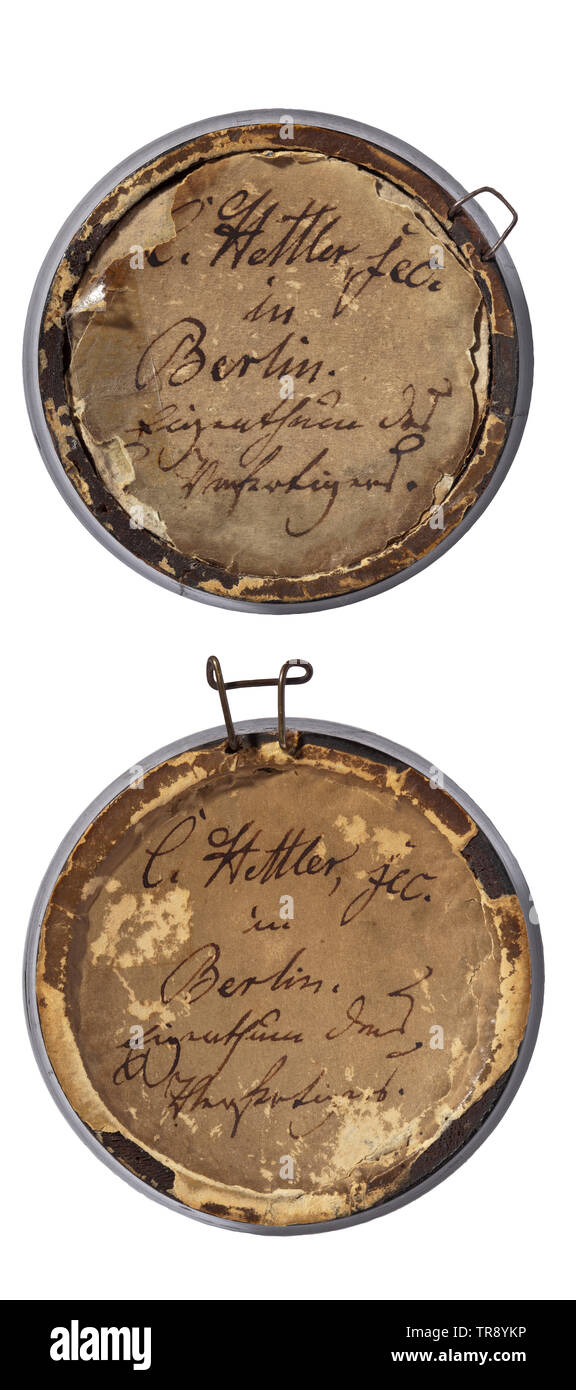 C. Hettler, fec.
in
Berlin.
Eigenthum des
Verfertigers.
C. Hettler, fec.
in
Berlin.
Eigenthum des
Verfertigers.
a
alamy
Image ID: TR8YKP
www.alamy.com